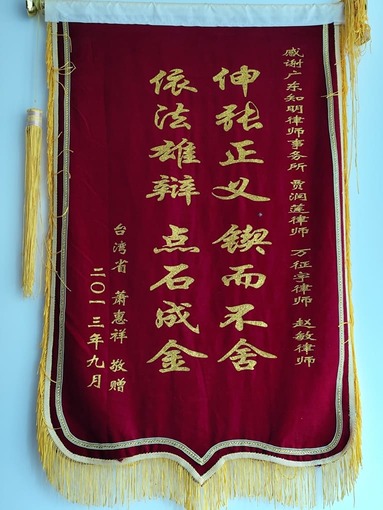 感谢广东知明律师事务所 贾润莲律师 万征宇律师 赵敏律师
伸张正义 锲而不舍
依法雄辩 点石成金
台湾省 萧惠祥 敬赠
二〇一三年九月